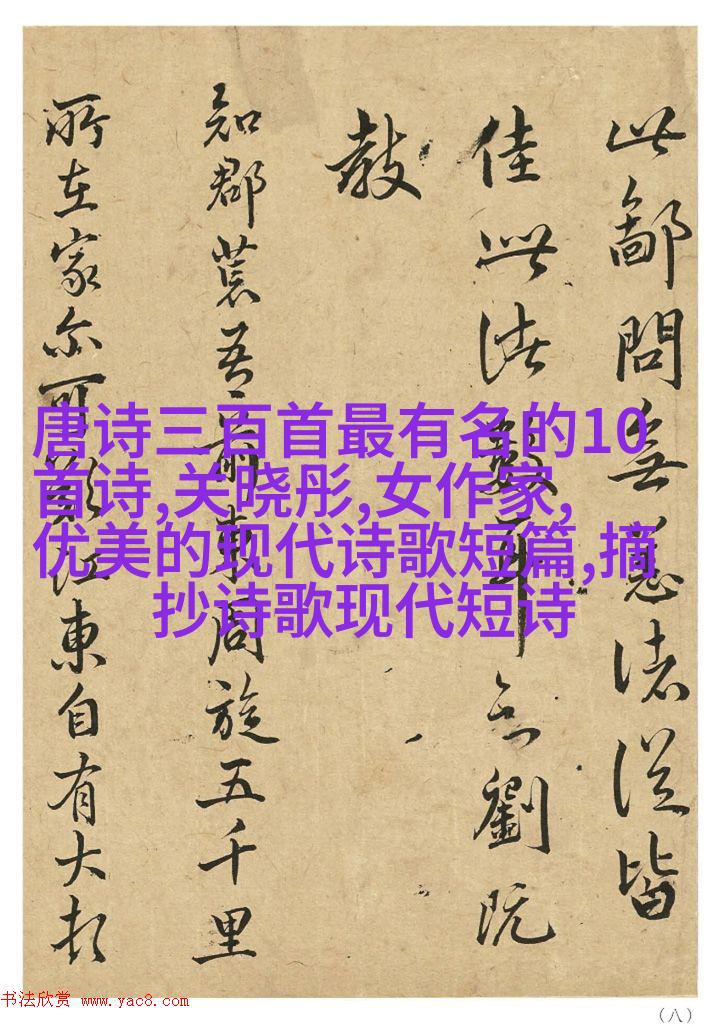 此鄙問無恙諸從皆
佳此諸數耳知劉既
敬
知郡荒吾前東周旋五千里
所在家尔可歎江東自有大
唐诗三百首最有名的10
首诗,关晓彤,女作家,
优美的现代诗歌短篇,摘
抄诗歌现代短诗
书法欣赏 www.yac8.com
(八)